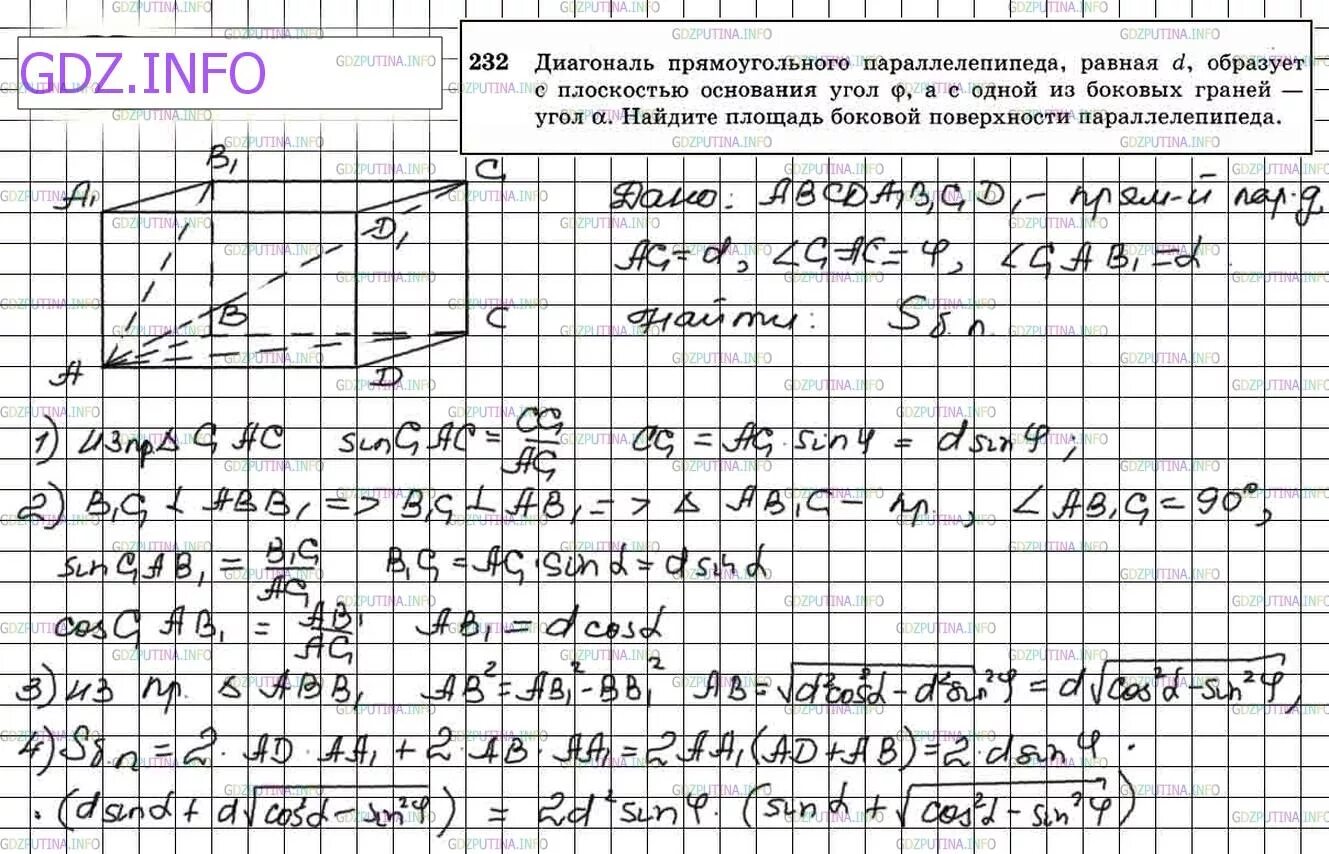 GDZ.INFO
232 Диагональ прямоугольного параллелепипеда, равная d, образует
с плоскостью основания угол φ, а с одной из боковых граней —
угол α. Найдите площадь боковой поверхности параллелепипеда.
B₁
C₁
A₁
D₁
B
C
A
D
Дано: ABCDA₁B₁C₁D₁ – прям-й пар-д,
AC₁ = d, ∠C₁AC = φ, ∠C₁AB₁ = α.
Найти: Sб.п.
1) из пр Δ C₁AC sin C₁AC = CC₁/AC₁ CC₁ = AC₁ · sin φ = d sin φ;
2) B₁C₁ ⊥ ABB₁ => B₁C₁ ⊥ AB₁ => Δ AB₁C₁ – пр., ∠AB₁C₁ = 90°,
sin C₁AB₁ = B₁C₁/AC₁ B₁C₁ = AC₁ · sin α = d sin α
cos C₁AB₁ = AB₁/AC₁ AB₁ = d cos α
3) из пр. Δ ABB₁ AB² = AB₁² - BB₁² AB = √(d²cos²α - d²sin²φ) = d√(cos²α - sin²φ),
4) Sб.п = 2 · AD · AA₁ + 2 · AB · AA₁ = 2AA₁(AD + AB) = 2 · d sin φ ·
· (d sin α + d√(cos²α - sin²φ)) = 2d² sin φ · (sin α + √(cos²α - sin²φ))
GDZPUTINA.INFO